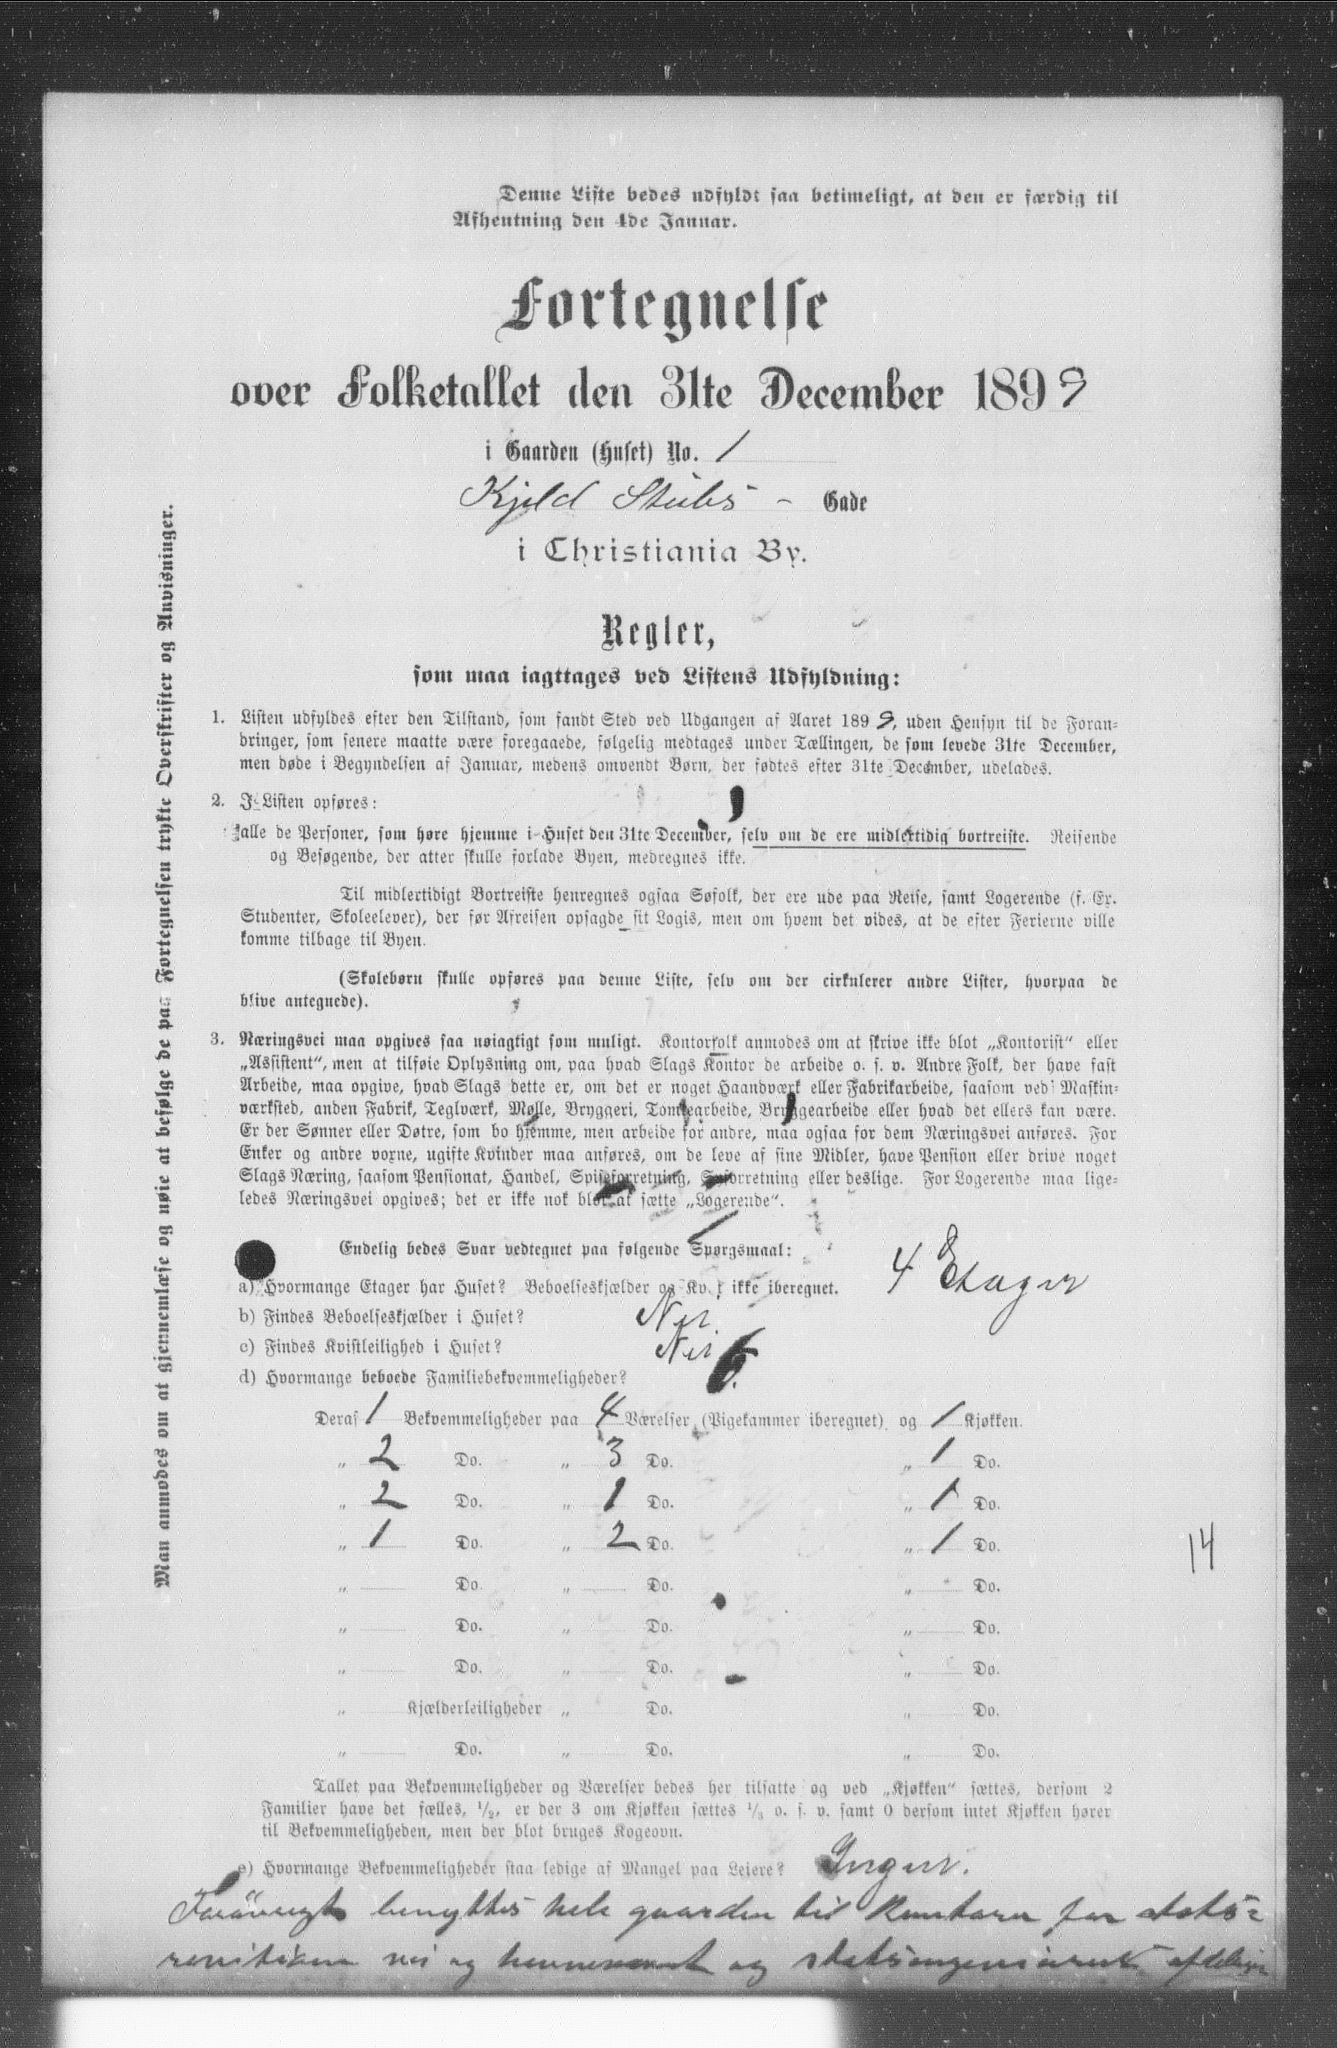 Denne Liste bedes udfyldt saa betimeligt, at den er færdig til
Afhentning den 4de Januar.
Fortegnelse
over Folketallet den 31te December 1899
i Gaarden (Huset) No. 1
Kjeld Stubs - Gade
i Christiania By.
Regler,
som maa iagttages ved Listens Udfyldning:
1. Listen udfyldes efter den Tilstand, som fandt Sted ved Udgangen af Aaret 1899, uden Hensyn til de Foran-
dringer, som senere maatte være foregaaede, følgelig medtages under Tællingen, de som levede 31te December,
men døde i Begyndelsen af Januar, medens omvendt Børn, der fødtes efter 31te December, udelades.
2. I Listen opføres:
alle de Personer, som høre hjemme i Huset den 31te December, selv om de ere midlertidig bortreiste. Reisende
og Besøgende, der atter skulle forlade Byen, medregnes ikke.
Til midlertidigt Bortreiste henregnes ogsaa Søfolk, der ere ude paa Reise, samt Logerende (f. Ex.
Studenter, Skoleelever), der før Afreisen opsagde sit Logis, men om hvem det vides, at de efter Ferierne ville
komme tilbage til Byen.
(Skolebørn skulle opføres paa denne Liste, selv om der cirkulerer andre Lister, hvorpaa de
blive antegnede).
3. Næringsvei maa opgives saa nøiagtigt som muligt. Kontorfolk anmodes om at skrive ikke blot „Kontorist“ eller
„Assistent“, men at tilføie Oplysning om, paa hvad Slags Kontor de arbeide o. s. v. Andre Folk, der have fast
Arbeide, maa opgive, hvad Slags dette er, om det er noget Haandværk eller Fabrikarbeide, saasom ved Maskin-
værksted, anden Fabrik, Teglværk, Mølle, Bryggeri, Tomtearbeide, Bryggearbeide eller hvad det ellers kan være.
Er der Sønner eller Døtre, som bo hjemme, men arbeide for andre, maa ogsaa for dem Næringsvei anføres. For
Enker og andre voxne, ugifte Kvinder maa anføres, om de leve af sine Midler, have Pension eller drive noget
Slags Næring, saasom Pensionat, Handel, Spiseforretning, Syforretning eller deslige. For Logerende maa lige-
ledes Næringsvei opgives; det er ikke nok blot at sætte „Logerende“.
Endelig bedes Svar vedtegnet paa følgende Spørgsmaal:
a) Hvormange Etager har Huset? Beboelseskjælder og Kvist ikke iberegnet. 4 Etager
b) Findes Beboelseskjælder i Huset? Nei
c) Findes Kvistleilighed i Huset? Nei
d) Hvormange beboede Familiebekvemmeligheder? 6.
Deraf 1 Bekvemmeligheder paa 4 Værelser (Pigekammer iberegnet) og 1 Kjøkken.
„ 2 Do. „ 3 Do. „ 1 Do.
„ 2 Do. „ 1 Do. „ 1 Do.
„ 1 Do. „ 2 Do. „ 1 Do.
„ Do. „ Do. „ Do.
„ Do. „ Do. „ Do.
„ Do. „ Do. „ Do.
„ Kjælderleiligheder „ Do. „ Do.
„ Do. „ Do. „ Do.
14
Tallet paa Bekvemmeligheder og Værelser bedes her tilsatte og ved „Kjøkken“ sættes, dersom 2
Familier have det fælles, 1/2, er der 3 om Kjøkken sættes 1/3 o. s. v. samt 0 dersom intet Kjøkken hører
til Bekvemmeligheden, men der blot bruges Kogeovn.
e) Hvormange Bekvemmeligheder staa ledige af Mangel paa Leiere? Ingen.
benyttes hele gaarden til Kontorer for stats-
og og
Man anmodes om at gjennemlæse og nøie at befølge de paa Fortegnelsen trykte Overskrifter og Anvisninger.